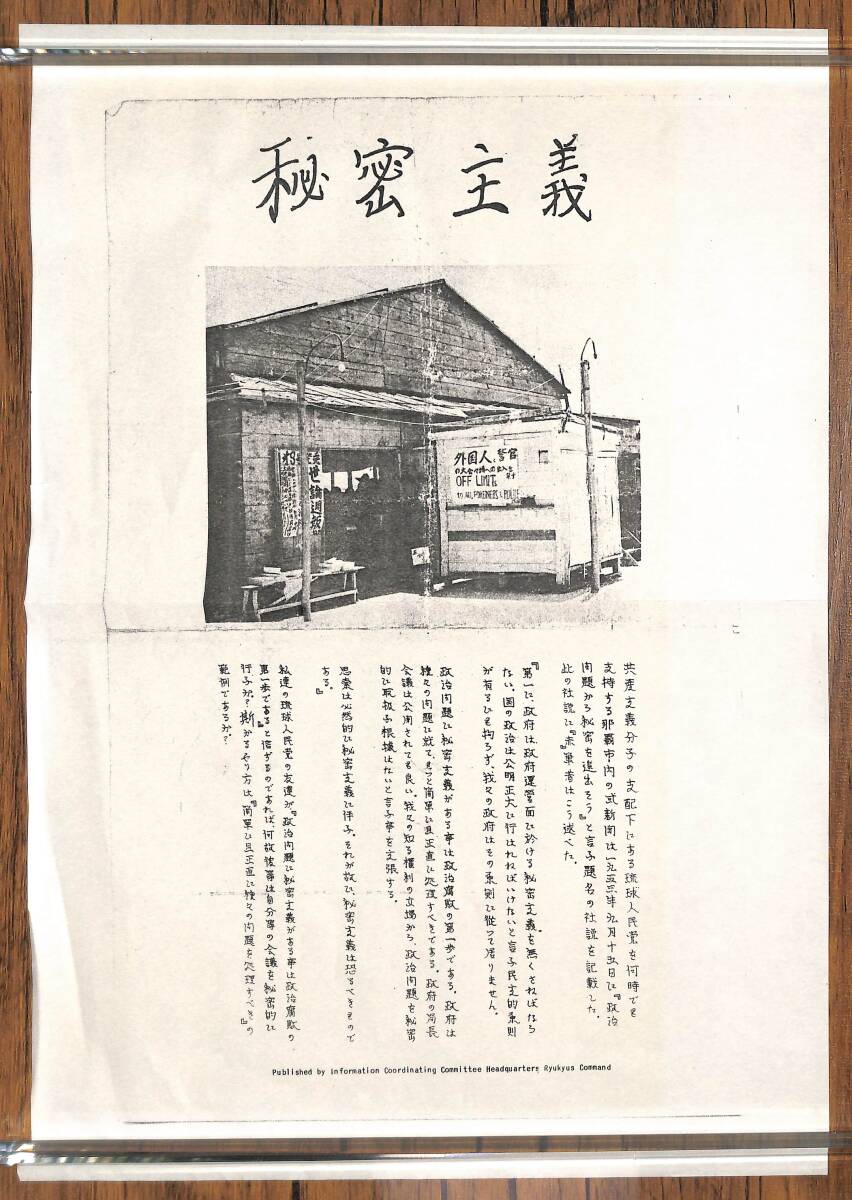 秘密主義
世論週報
外国人、警官
OFF LIMITS
TO ALL FOREINERS & POLICE
共産主義分子の支配下にある琉球人民党を何時でも
支持する那覇市内の或新聞は一九五三年九月十五日に『政治
問題から秘密を追出そう』と言う題名の社説を記載した。
此の社説に『赤』筆者はこう述べた。
『第一に政府は政府運営面に於ける秘密主義を無くさねばなら
ない。国の政治は公明正大に行はれねばいけないと言う民主的原則
が有るにも拘らず、我々の政府はその原則に従って居りません。
政治問題に秘密主義がある事は政治腐敗の第一歩である。政府は
種々の問題に就てもっと簡単に且正直に処理すべきである。政府の局長
会議は公開されても良い。我々の知る権利の立場から、政治問題を秘密
的に取扱う根拠はないと言う事を主張する。
思索は必然的に秘密主義に伴う。それが故に、秘密主義は恐るべきもので
ある。』
私達の琉球人民党の友達が『政治問題に秘密主義がある事は政治腐敗の
第一歩である』と信ずるのであれば、何故彼等は自分等の会議を秘密的に
行うか?斯かるやり方は『簡単に且正直に種々の問題を処理すべき』の
範例であるか?
Published by Information Coordinating Committee Headquarters Ryukyus Command